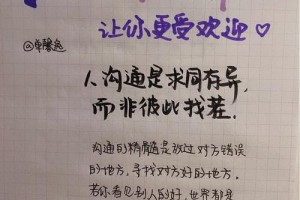 让你更受欢迎
@卓馨逸
人沟通是求同存异,
而非彼此找茬.
沟通的精髓是放过对方错误
的地方,寻找对方好的地方.
若你看见别人的好,世界都是